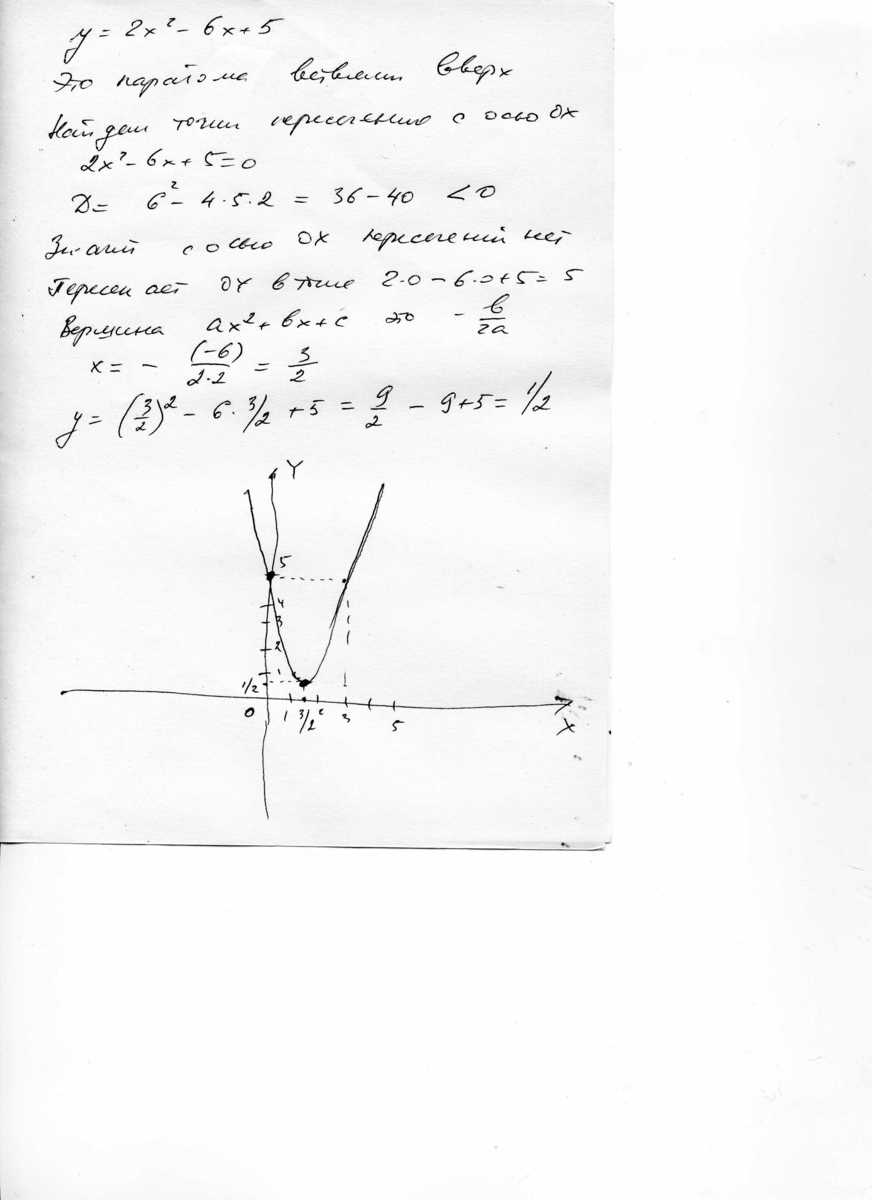 y = 2x² - 6x + 5
Это парабола ветвями вверх
Найдем точки пересечения с осью OX
2x² - 6x + 5 = 0
D = 6² - 4·5·2 = 36 - 40 < 0
Значит с осью OX пересечений нет
Пересекает OY в точке 2·0 - 6·0 + 5 = 5
Вершина ax² + bx + c это - b/2a
x = - (-6)/2·2 = 3/2
y = (3/2)² - 6·3/2 + 5 = 9/2 - 9 + 5 = 1/2
Y
5
4
3
2
1
1/2
0 1 3/2 2 3 5
X